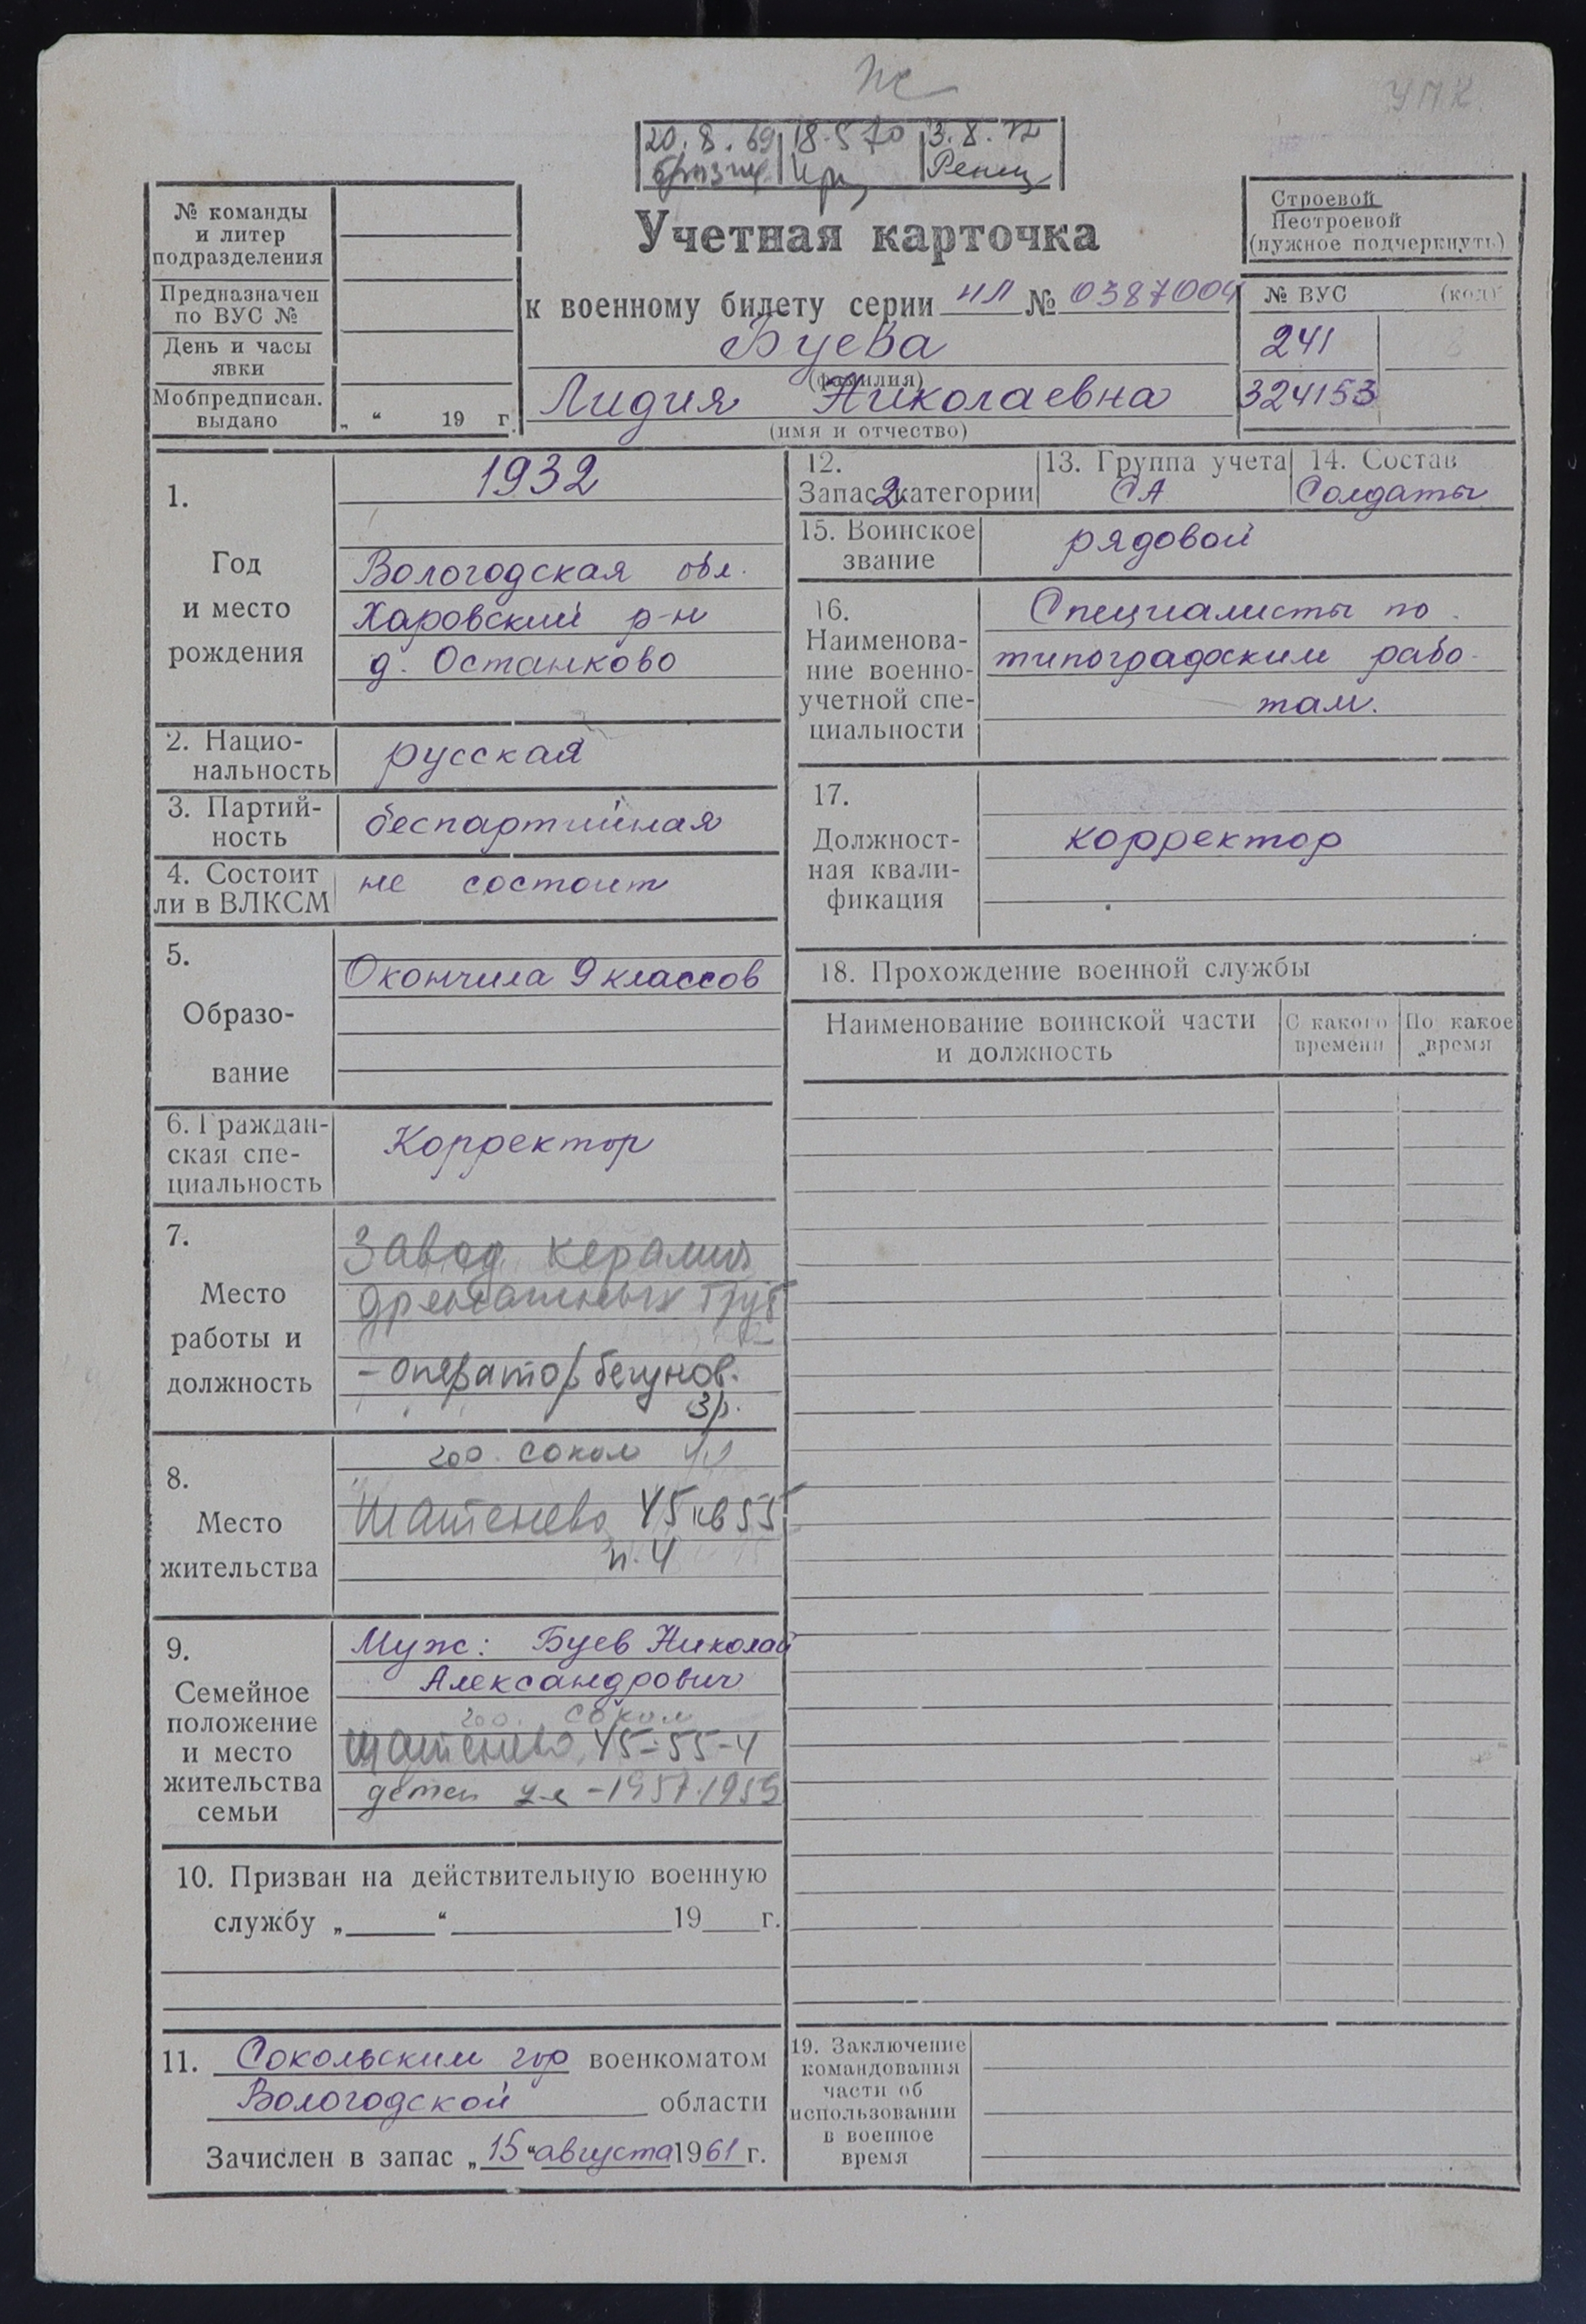 УПК
20.8.69 18.5 70 3.8.72
Учетная карточка
к военному билету серии НЛ № 0387004
Буева
(фамилия)
Лидия Николаевна
(имя и отчество)
№ команды
и литер
подразделения
Предназначен
по ВУС №
День и часы
явки
Мобпредписан.
выдано
„ “ 19 г.
Строевой
Нестроевой
(нужное подчеркнуть)
№ ВУС (код)
241
324153
1.
Год
и место
рождения
1932
Вологодская обл.
Харовский р-н
д. Останково
2. Нацио-
нальность
русская
3. Партий-
ность
беспартийная
4. Состоит
ли в ВЛКСМ
не состоит
5.
Образо-
вание
Окончила 9 классов
6. Граждан-
ская спе-
циальность
Корректор
7.
Место
работы и
должность
Завод керамич
дренажных труб
- оператор бегунов.
3р.
8.
Место
жительства
гор. Сокол
Шатенево 45 кв 55
п. 4
9.
Семейное
положение
и место
жительства
семьи
Муж: Буев Николай
Александрович
гор. Сокол
Шатенево, 45-55-4
детей 2-е - 1957. 1959
10. Призван на действительную военную
службу „ “ 19 г.
11. Сокольским гор военкоматом
Вологодской области
Зачислен в запас „15“ августа 1961 г.
12.
Запас 2 категории
13. Группа учета
СА
14. Состав
Солдаты
15. Воинское
звание
рядовой
16.
Наименова-
ние военно-
учетной спе-
циальности
Специалисты по
типоградским рабо-
там.
17.
Должност-
ная квали-
фикация
корректор
18. Прохождение военной службы
Наименование воинской части
и должность
С какого
времени
По какое
время
19. Заключение
командования
части об
использовании
в военное
время